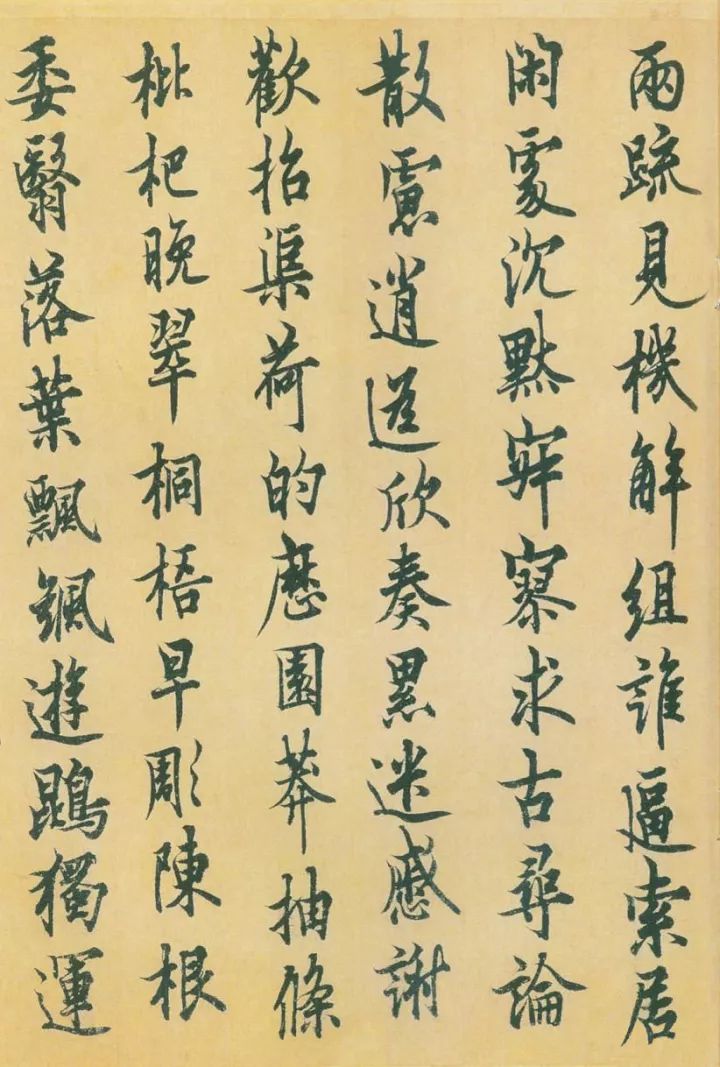 兩疏見機解組誰逼索居
閑處沉默寂寥求古尋論
散慮逍遥欣奏累遣慼謝
歡招渠荷的歷園莽抽條
枇杷晚翠梧桐早彫陳根
委翳落葉飄颻遊鵾獨運